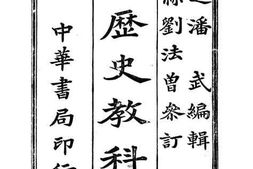 潘武編輯
劉法曾參訂
歷史教科
中華書局印行